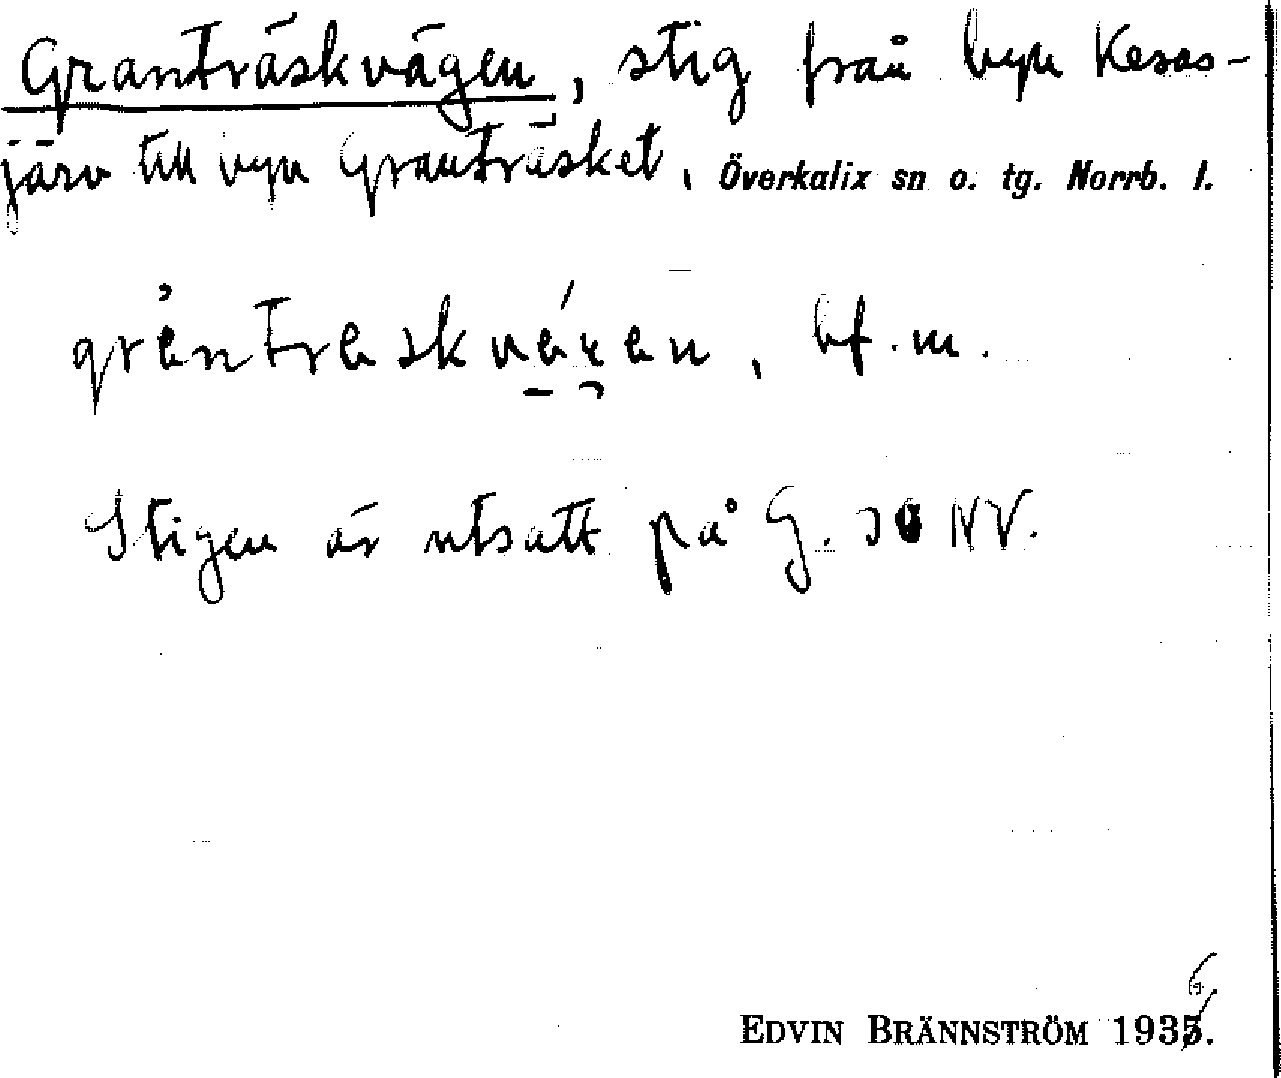 Granträskvägen, stig från byn Kesas-
järv till byn Granträsket, Överkalix sn o. tg. Norrb. l.
bf. m.
Stigen är utsatt på G. 30 NV.
6
EDVIN BRÄNNSTRÖM 1935.